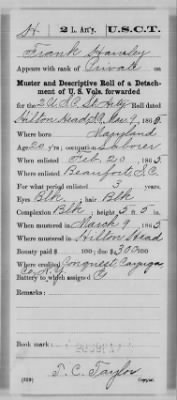 H | 21 Art'y. | U.S.C.T.
Frank Hansley
Appears with rank of Private on
Muster and Descriptive Roll of a Detach-
ment of U. S. Vols. forwarded
for the 2 U.S.C. Lt. Art'y. Roll dated
Hilton Head S.C. Mar. 9, 1865.
Where born Maryland
Age 20 y'rs; occupation Laborer
When enlisted Feb. 20, 1865
Where enlisted Beaufort S.C.
For what period enlisted 3 years.
Eyes Blk; hair Blk
Complexion Blk; height 5 ft. 5 in.
When mustered in March 9, 1865
Where mustered in Hilton Head
Bounty paid $ 100; due $ 300 100
Where credited Conquest, Cayuga
Co. N.Y.
Battery to which assigned G
Remarks:
Book mark:
T. C. Taylor
(339) Copyist.